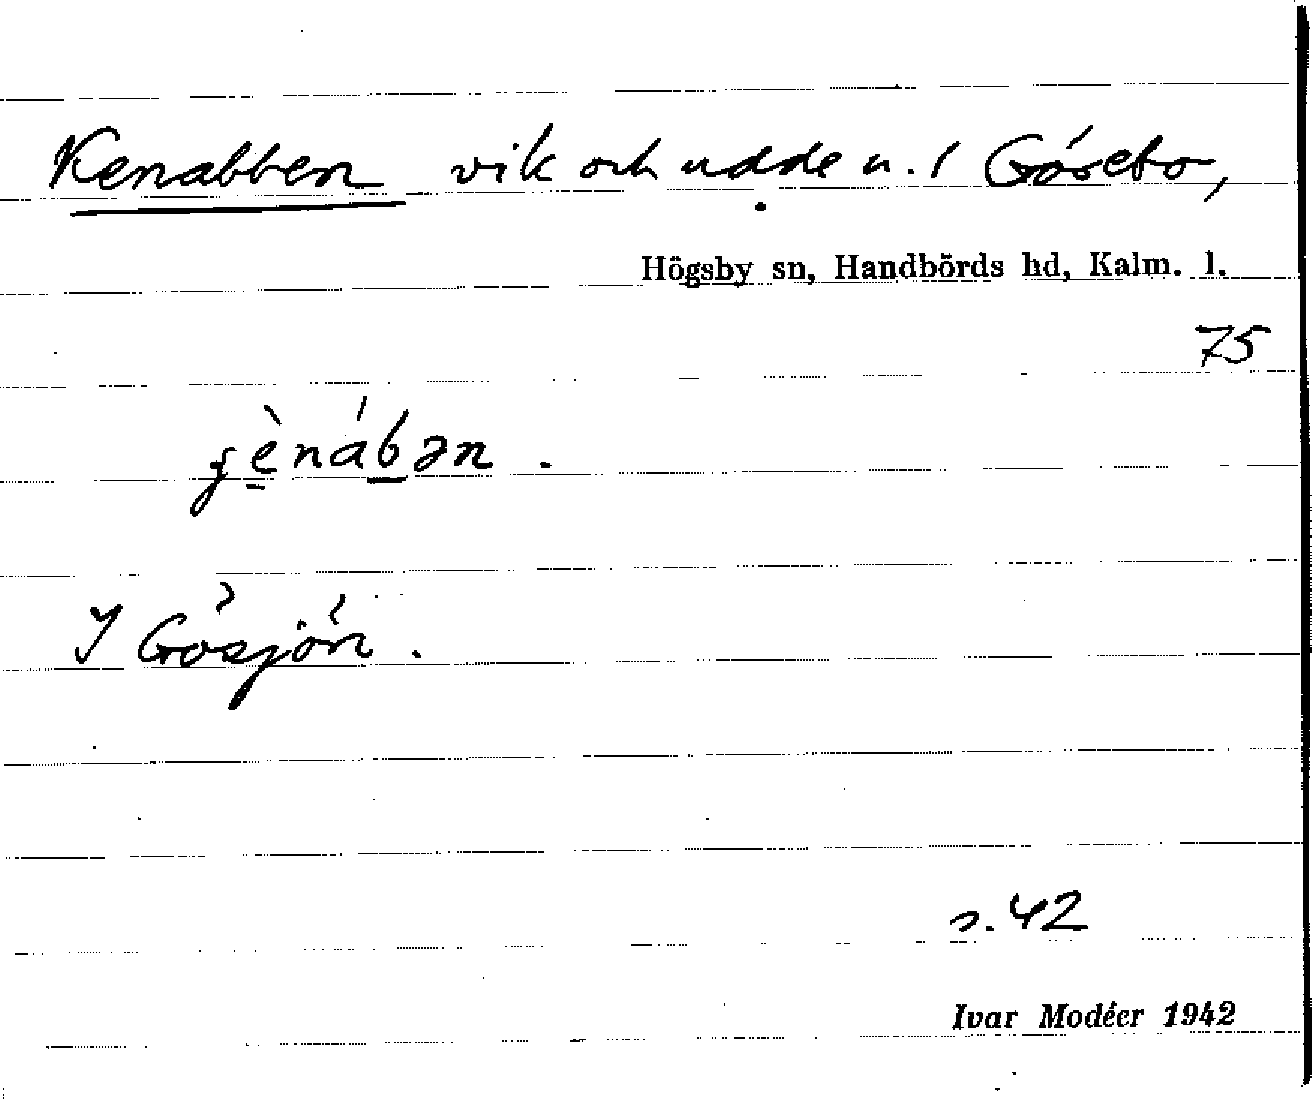 Kenabben vik och udde u. / Gósebo,
Högsby sn, Handbörds hd, Kalm. l.
75
I Gösjön.
s. 42
Ivar Modéer 1942